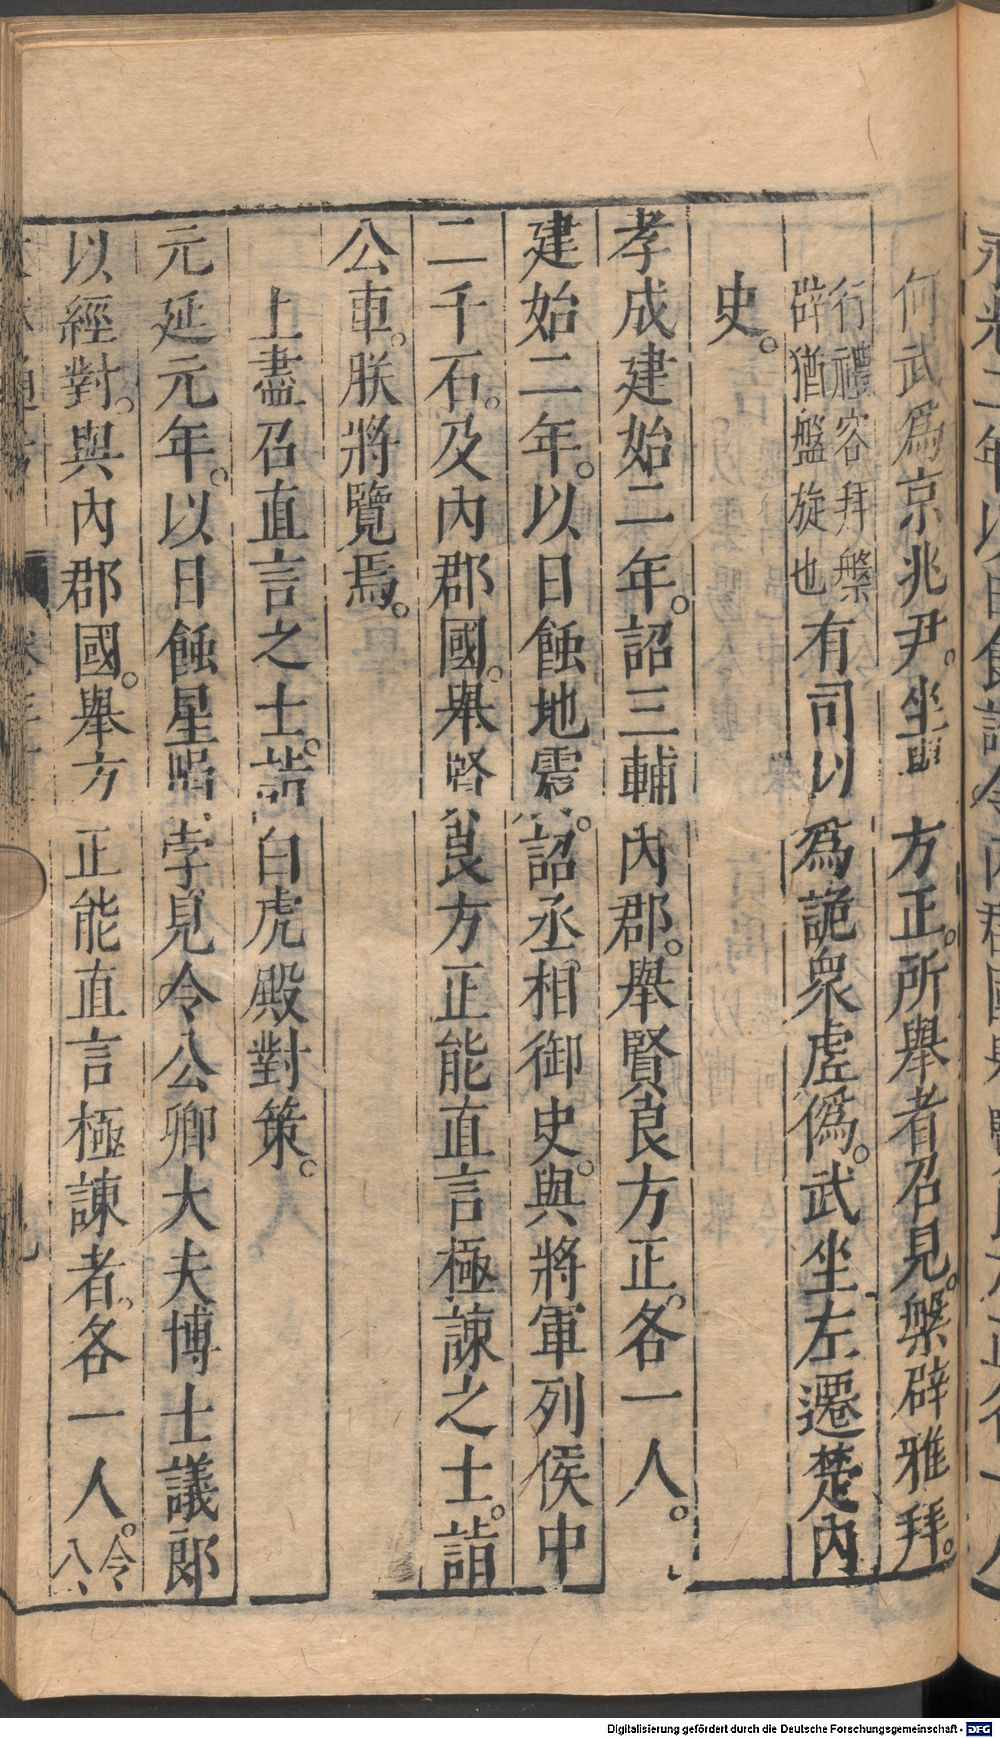 何武爲京兆尹。坐舉方正。所舉者召見。槃辟雅拜。
行禮容拜槃
辟猶盤旋也
有司以爲詭衆虛僞。武坐左遷楚內
史。
孝成建始二年。詔三輔內郡。舉賢良方正。各一人。
建始二年。以日蝕地震。詔丞相御史。與將軍列侯中
二千石。及內郡國。舉賢良方正能直言極諫之士。詣
公車。朕將覽焉。
上盡召直言之士。詣白虎殿對策。
元延元年。以日蝕星隕。孛見。令公卿大夫博士議郎
以經對。與內郡國。舉方正能直言極諫者。各一人。
令
八
Digitalisierung gefördert durch die Deutsche Forschungsgemeinschaft - DFG